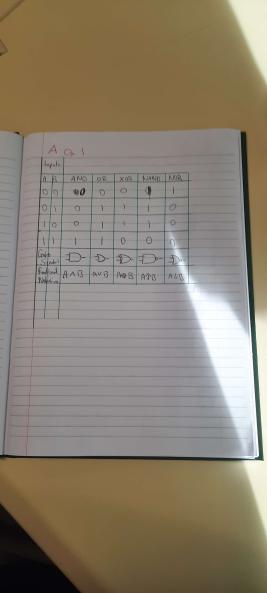 A Q 1
Inputs
A B AND OR XOR NAND NOR
0 0 0 0 0 1 1
0 1 0 1 1 1 0
1 0 0 1 1 1 0
1 1 1 1 0 0 0
Gate
Symbol
Notation A∧B A∨B A⊕B A↑B A↓B